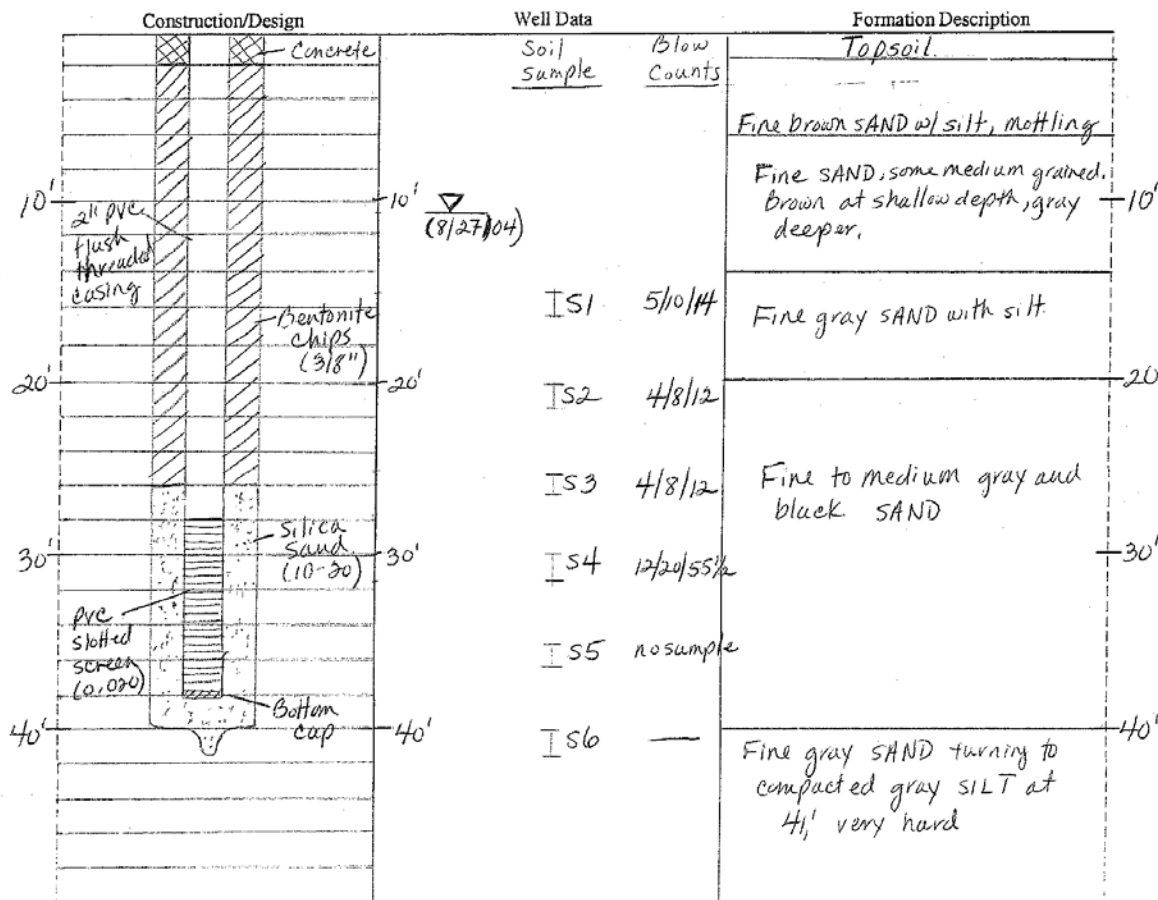 Construction/Design
Well Data
Formation Description
Concrete
10'
10'
2" PVC
flush
threaded
casing
Bentonite
chips
(3/8")
20'
20'
Silica
sand
(10-20)
30'
30'
PVC
slotted
screen
(0.020)
Bottom
cap
40'
40'
Soil
sample
Blow
Counts
(8/27/04)
S1 5/10/14
S2 4/8/12
S3 4/8/12
S4 12/20/55½
S5 no sample
S6 —
Topsoil.
Fine brown SAND w/ silt, mottling
Fine SAND, some medium grained.
Brown at shallow depth, gray
deeper.
10'
Fine gray SAND with silt.
20'
Fine to medium gray and
black SAND
30'
40'
Fine gray SAND turning to
compacted gray SILT at
41,' very hard